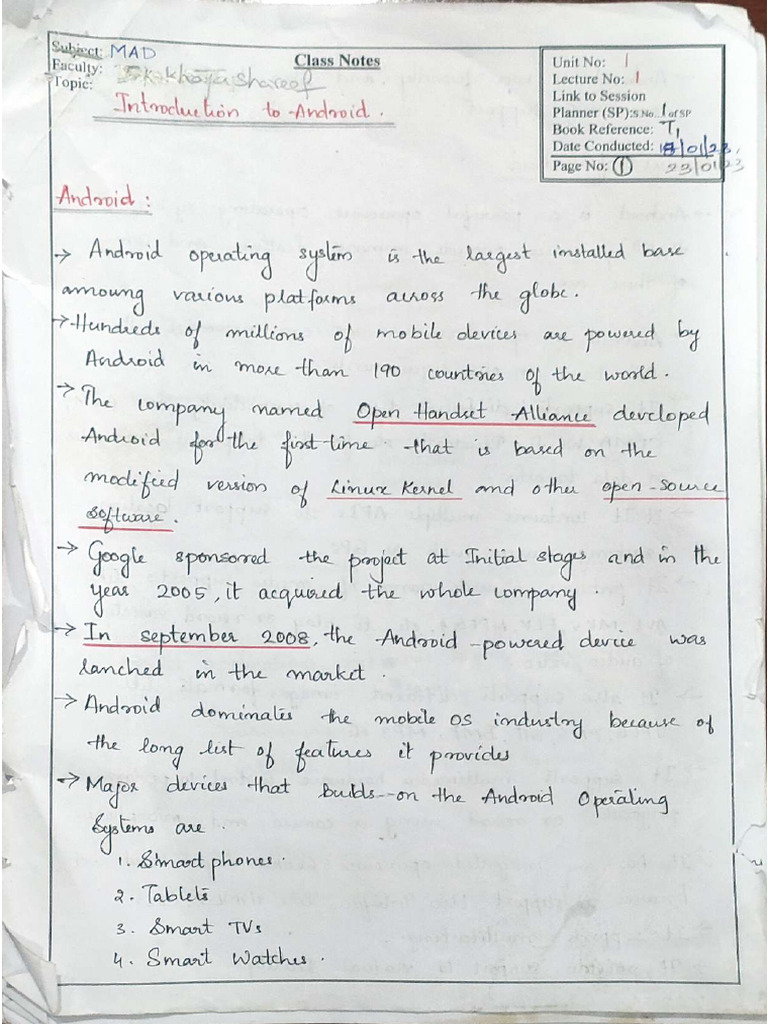 Subject: MAD
Faculty: S.K. Khaja Shareef
Topic:
Introduction to Android.
Class Notes
Unit No: 1
Lecture No: 1
Link to Session
Planner (SP):S.No. 1 of SP
Book Reference: T1
Date Conducted: 18/01/23,
Page No: 1 23/01/23
Android :
→ Android operating system is the largest installed base
amoung various platforms across the globe.
→ Hundreds of millions of mobile devices are powered by
Android in more than 190 countries of the world.
→ The company named Open Handset Alliance developed
Android for the first time that is based on the
modified version of Linux Kernel and other open-source
software.
→ Google sponsored the project at Initial stages and in the
year 2005, it acquired the whole company.
→ In september 2008, the Android-powered device was
lanched in the market.
→ Android dominates the mobile OS industry because of
the long list of features it provides
→ Major devices that builds on the Android Operating
Systems are.
1. Smart phones.
2. Tablets
3. Smart TVs
4. Smart Watches.